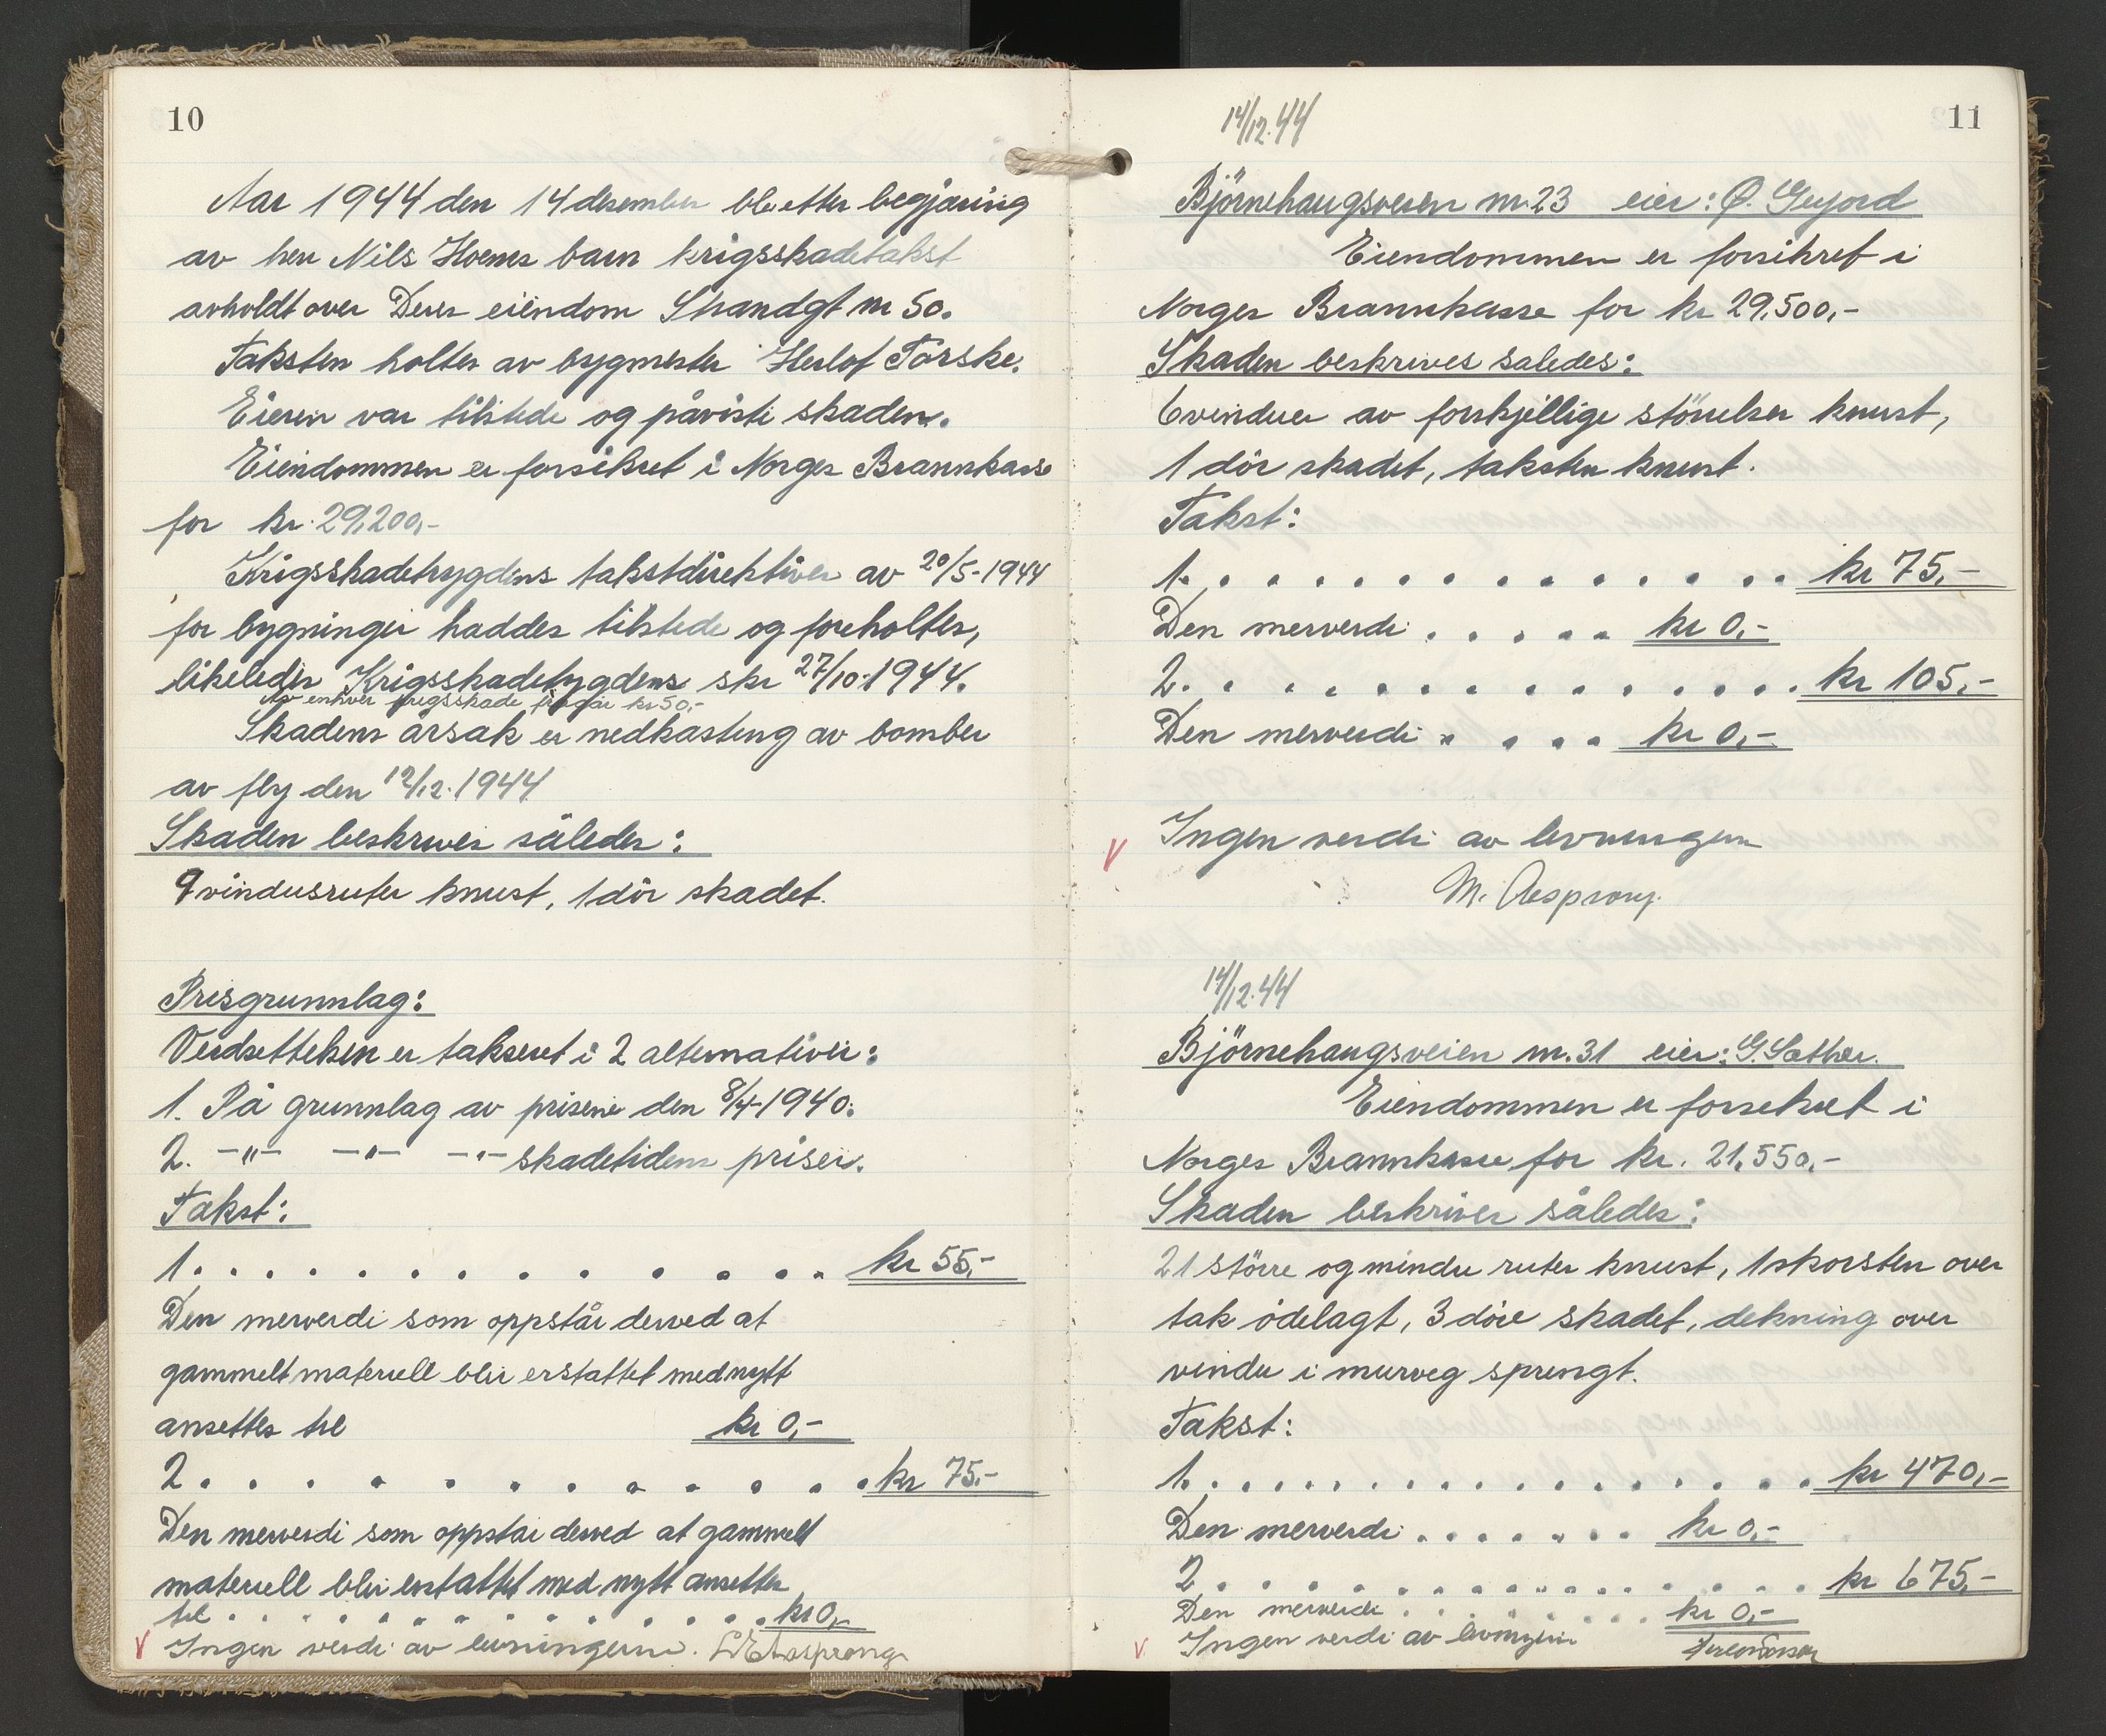 10
Aar 1944 den 14 desember ble etter begjæring
av herr Nils Hoems barn krigsskadetakst
avholdt over Deres eiendom Strandgt nr 50.
Taksten holtes av bygmester Herlof Torske.
Eieren var tilstede og påviste skaden.
Eiendommen er forsikret i Norges Brannkasse
for kr. 29,200,-
Krigsskadetrygdens takstdirektiver av 20/5-1944
for bygninger haddes tilstede og foreholtes,
likeledes Krigsskadetrygdens skr 27/10-1944.
Av enhver krigsskade fragår kr 50,-
Skadens årsak er nedkasting av bomber
av fly den 12/12.1944
Skaden beskrives således:
9 vindusruter knust, 1 dör skadet.
Prisgrunnlag:
Verdsettelsen er takseret i 2 alternativer:
1. På grunnlag av prisene den 8/4-1940.
2. -"- -"- -"- skadetidens priser.
Takst:
1. . . . . . . . . . . . . . kr 55,-
Den merverdi som oppstår derved at
gammelt materiell blir erstattet med nytt
ansettes til kr 0,-
2. . . . . . . . . . . . kr 75,-
Den merverdi som oppstår derved at gammelt
materiell blir erstattet med nytt ansettes
til . . . . . . . . . . . . . kr 0,-
V Ingen verdi av levningene. Aasprong
11
14/12.44
Björnehaugsveien nr. 23 eier: Ø.
Eiendommen er forsikret i
Norges Brannkasse for kr 29,500,-
Skaden beskrives saledes:
6 vinduer av forskjellige störrelser knust,
1 dör skadet, taksten knust.
Takst:
1. . . . . . . . . . . . . . kr 75,-
Den merverdi . . . . . . kr 0,-
2. . . . . . . . . . . . . . kr 105,-
Den merverdi . . . . kr 0,-
V Ingen verdi av levningene
M. Aasprong.
14/12.44
Björnehaugsveien nr. 31 eier: G. Sæther.
Eiendommen er forsikret i
Norges Brannkasse for kr. 21,550,-
Skaden beskrives således:
21 större og mindre ruter knust, 1 skorsten over
tak ödelagt, 3 döre skadet, dekning over
vindu i murveg sprengt.
Takst:
1. . . . . . . . . . . . . . . . kr 470,-
Den merverdi . . . . . . . kr 0,-
2. . . . . . . . . . . . . . . kr 675,-
Den merverdi . . . . . . . . kr 0,-
V Ingen verdi av levningene